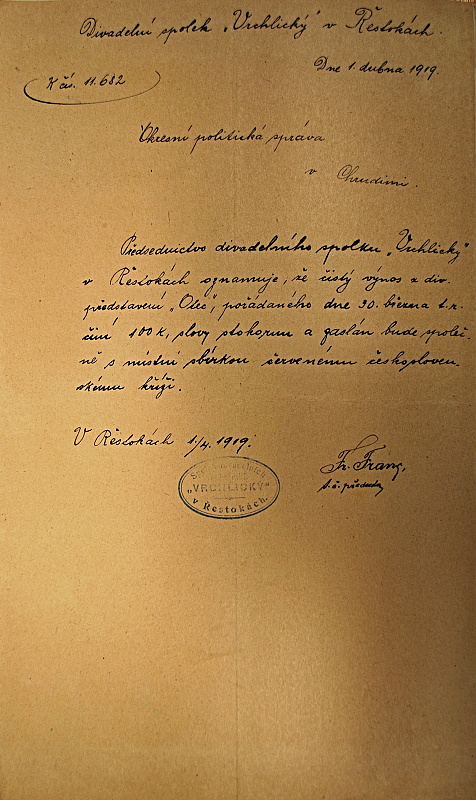 Divadelní spolek „Vrchlický" v Řestokách.
Dne 1. dubna 1919.
K čís. 11.682
Okresní politická správa
v Chrudimi.
Předsednictvo divadelního spolku „Vrchlický"
v Řestokách oznamuje, že čistý výnos z div.
představení „Otec", pořádaného dne 30. března t.r.
činí 100 K, slovy stokorun a zaslán bude společ-
ně s místní sbírkou červenému českosloven-
skému kříži.
V Řestokách 1./4. 1919.
Fr. Franc,
t. č. předseda
„VRCHLICKÝ"
v Řestokách.